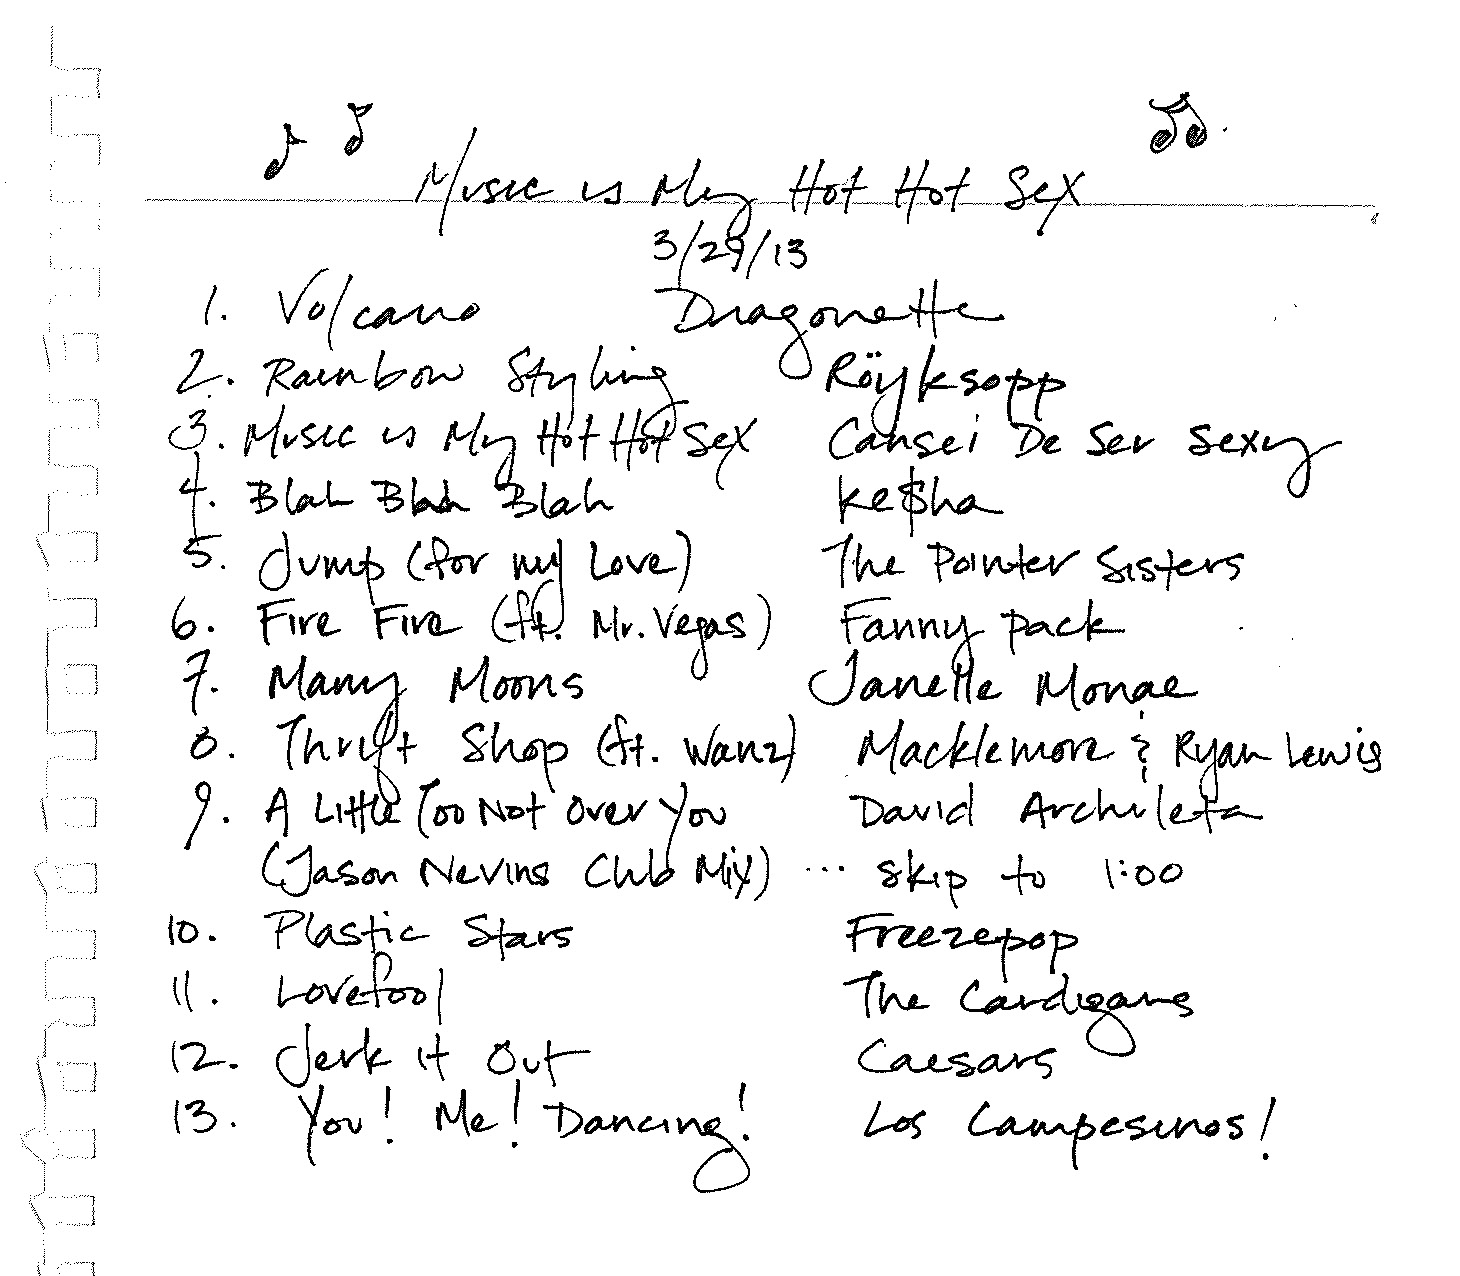 Music is My Hot Hot Sex
3/29/13
1. Volcano Dragonette
2. Rainbow Styling Röyksopp
3. Music is My Hot Hot Sex Cansei De Ser Sexy
4. Blah Blah Blah Ke$ha
5. Jump (for my Love) The Pointer Sisters
6. Fire Fire (ft. Mr. Vegas) Fanny pack
7. Many Moons Janelle Monae
8. Thrift Shop (ft. Wanz) Macklemore & Ryan Lewis
9. A Little Too Not Over You David Archuleta
(Jason Nevins Club Mix) ... skip to 1:00
10. Plastic Stars Freezepop
11. Lovefool The Cardigans
12. Jerk it Out Caesars
13. You! Me! Dancing! Los Campesinos!